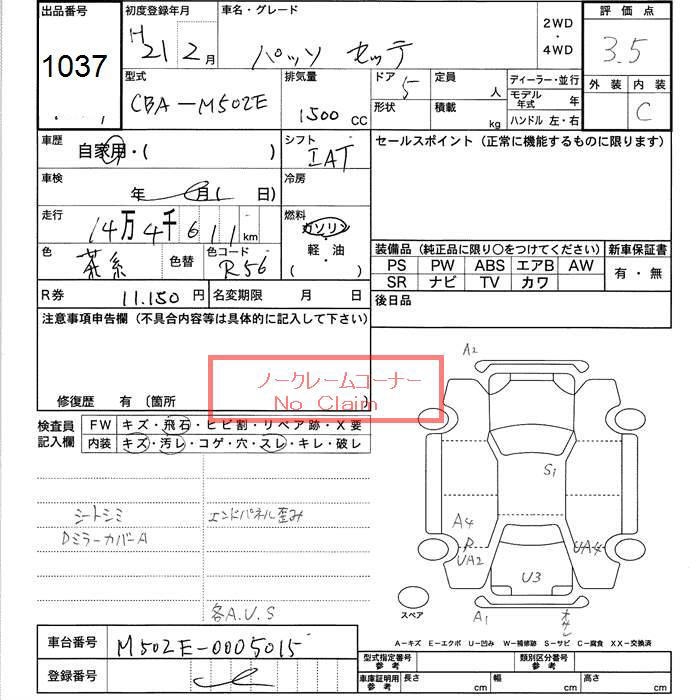 出品番号 初度登録年月 車名・グレード 2WD ・ 4WD 評価点
1037 H21 2月 パッソ セッテ 3.5
型式 排気量 ドア 定員 ディーラー・並行 外装 内装
CBA-M502E 1500 CC 5 人 モデル年式 年 C
形状 積載 kg ハンドル 左・右
車歴 シフト セールスポイント (正常に機能するものに限ります)
自家用・( ) IAT
車検 冷房
年 月( 日)
走行 燃料
14万4千611km ガソリン
軽・油
( )
色 色替 色コード 装備品 (純正品に限り○をつけてください) 新車保証書
茶系 R56
PS PW ABS エアB AW 有・無
SR ナビ TV カワ
R券 11.150円 名変期限 月 日 後日品
注意事項申告欄 (不具合内容等は具体的に記入して下さい)
ノークレームコーナー
No Claim
修復歴 有 (箇所 )
検査員記入欄 FW キズ・飛石・ヒビ割・リペア跡・X要
内装 キズ・汚レ・コゲ・穴・スレ・キレ・破レ
A2
S1
A4
R
UA2
UA4
U3
A1
シートシミ エンドパネル歪み
Dミラーカバー A
各A.U.S
スペア
A-キズ E-エクボ U-凹み W-補修跡 S-サビ C-腐食 XX-交換済
車台番号 M502E-0005015
登録番号
型式指定番号 参考 類別区分番号 参考
車庫証明用 参考 長さ cm 幅 cm 高さ cm